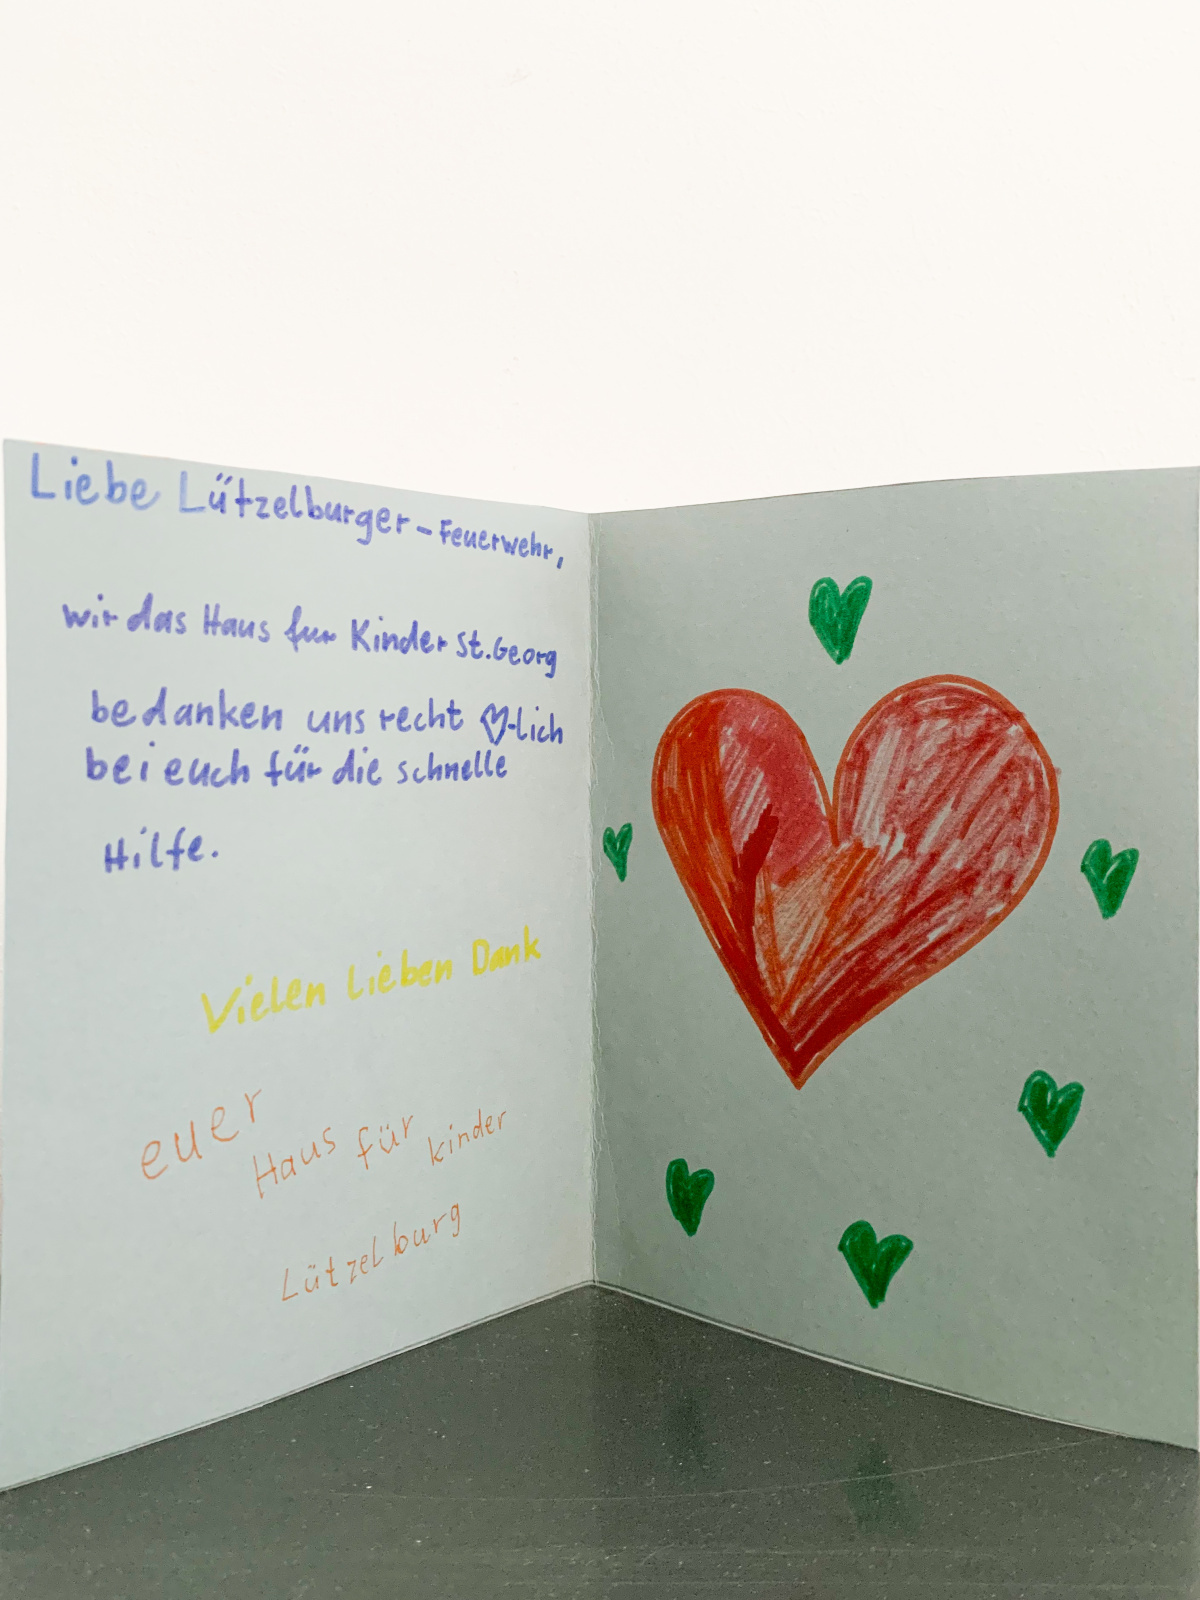 Liebe Lützelburger-Feuerwehr,
wir das Haus fur Kinder St.Georg
bedanken uns recht ♡-lich
bei euch für die schnelle
Hilfe.
Vielen lieben Dank
euer
Haus für kinder
Lützelburg